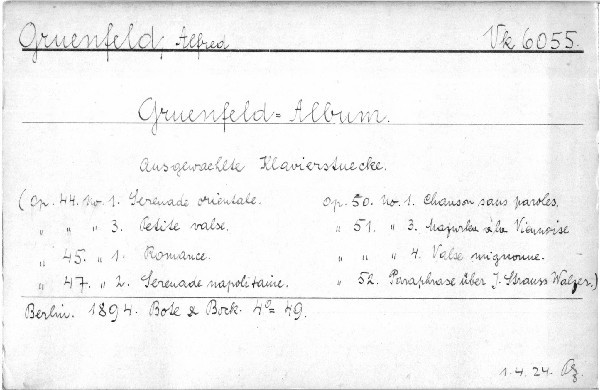 Gruenfeld, Alfred Vk 6055.
Gruenfeld=Album.
Ausgewaehlte Klavierstuecke.
(Op. 44. No. 1. Serenade orientale.
„ „ „ 3. Petite valse.
„ 45. „ 1. Romance.
„ 47. „ 2. Serenade napolitaine.
Op. 50. No. 1. Chanson sans paroles.
„ 51. „ 3. Mazurka à la Viennoise
„ „ 4. Valse mignonne.
„ 52. Paraphrase über J. Strauss Walzer.)
Berlin. 1894. Bote & Bock. 4º= 49.
1.4.24.